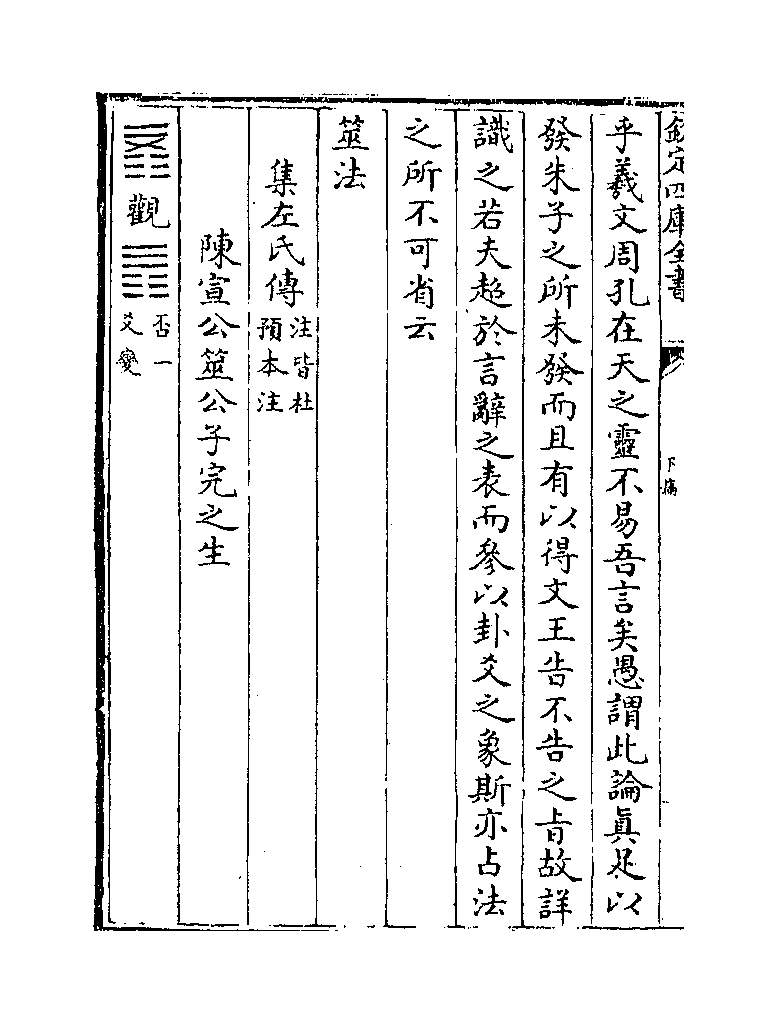 欽定四庫全書
下篇
乎羲文周孔在天之靈不易吾言矣愚謂此論眞足以
發朱子之所未發而且有以得文王告不告之旨故詳
識之若夫超於言辭之表而參以卦爻之象斯亦占法
之所不可省云
筮法
集左氏傳注皆杜預本注
陳宣公筮公子完之生
觀否一爻變